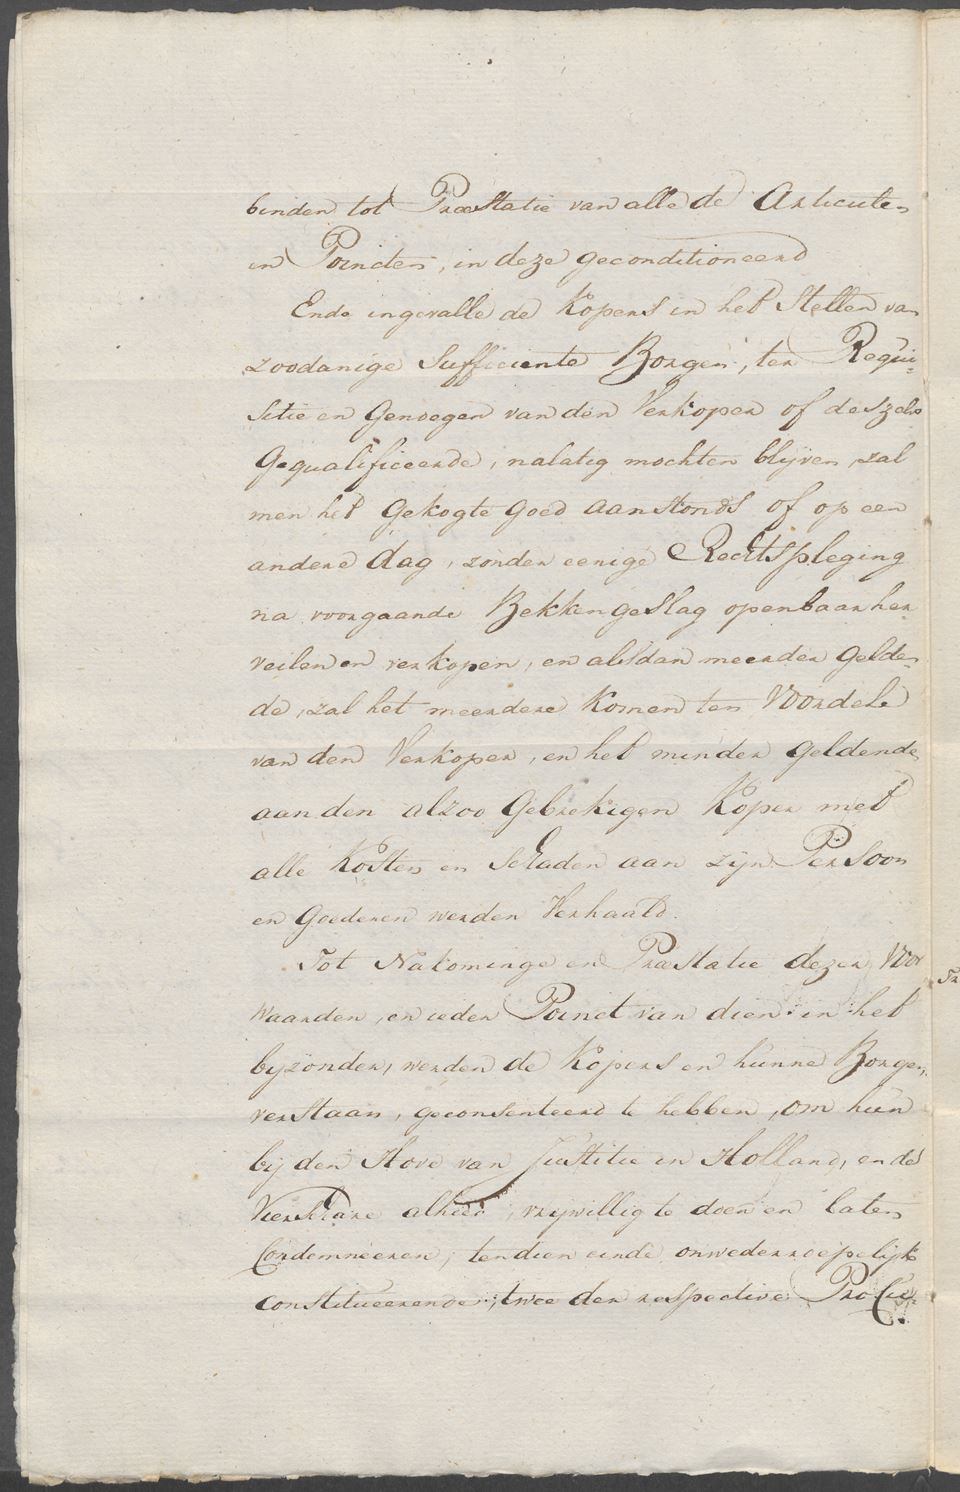 binden tot Præstatie van alle de Articulen
en Poincten, in deze geconditioneerd
Ende ingevalle de Kopers in het Stellen van
zoodanige Sufficiente Borgen, ter Requi-
sitie en Genoegen van den Verkoper of deszelvs
Gequalificeerde, nalatig mochten blijven, zal
men het Gekogte goed aanstonds of op een
andere dag, zonder eenige Rechtspleging
na voorgaande Bekkengeslag openbaar her
veilen en verkopen, en alsdan meerder gelden-
de, zal het meerdere komen ten Voordele
van den Verkoper, en het minder geldende
aan den alzoo Gebrekigen Koper met
alle Kosten en Schaden aan zijn Persoon
en Goederen werden Verhaald.
Tot Nakominge en Præstatie dezer Voor
waarden, en ieder Poinct van dien in het
byzonder, werden de Kopers en hunne Borgen,
verstaan, geconsenteerd te hebben, om hun
bij den Hove van Justitie in Holland, en de
Vierschare alhier, vrijwillig te doen en laten
Condemneeren, ten dien einde onwederroepelijk
constitueerende, twee der respective Procu-